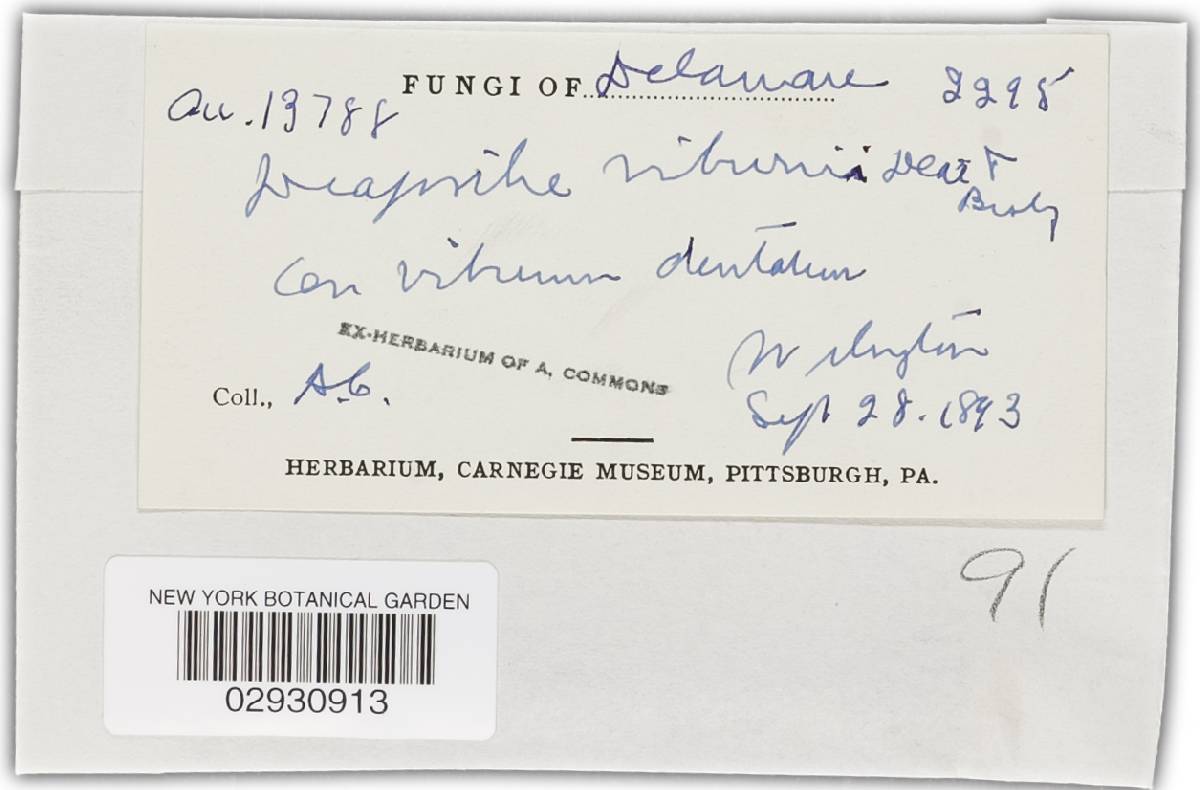 FUNGI OF Delaware 2295
Ac. 13788
viburni Dear &
on viburnum dentatum
EX-HERBARIUM OF A. COMMONS
Wilmington
Coll., A.C.
Sept 28. 1893
HERBARIUM, CARNEGIE MUSEUM, PITTSBURGH, PA.
91
NEW YORK BOTANICAL GARDEN
02930913